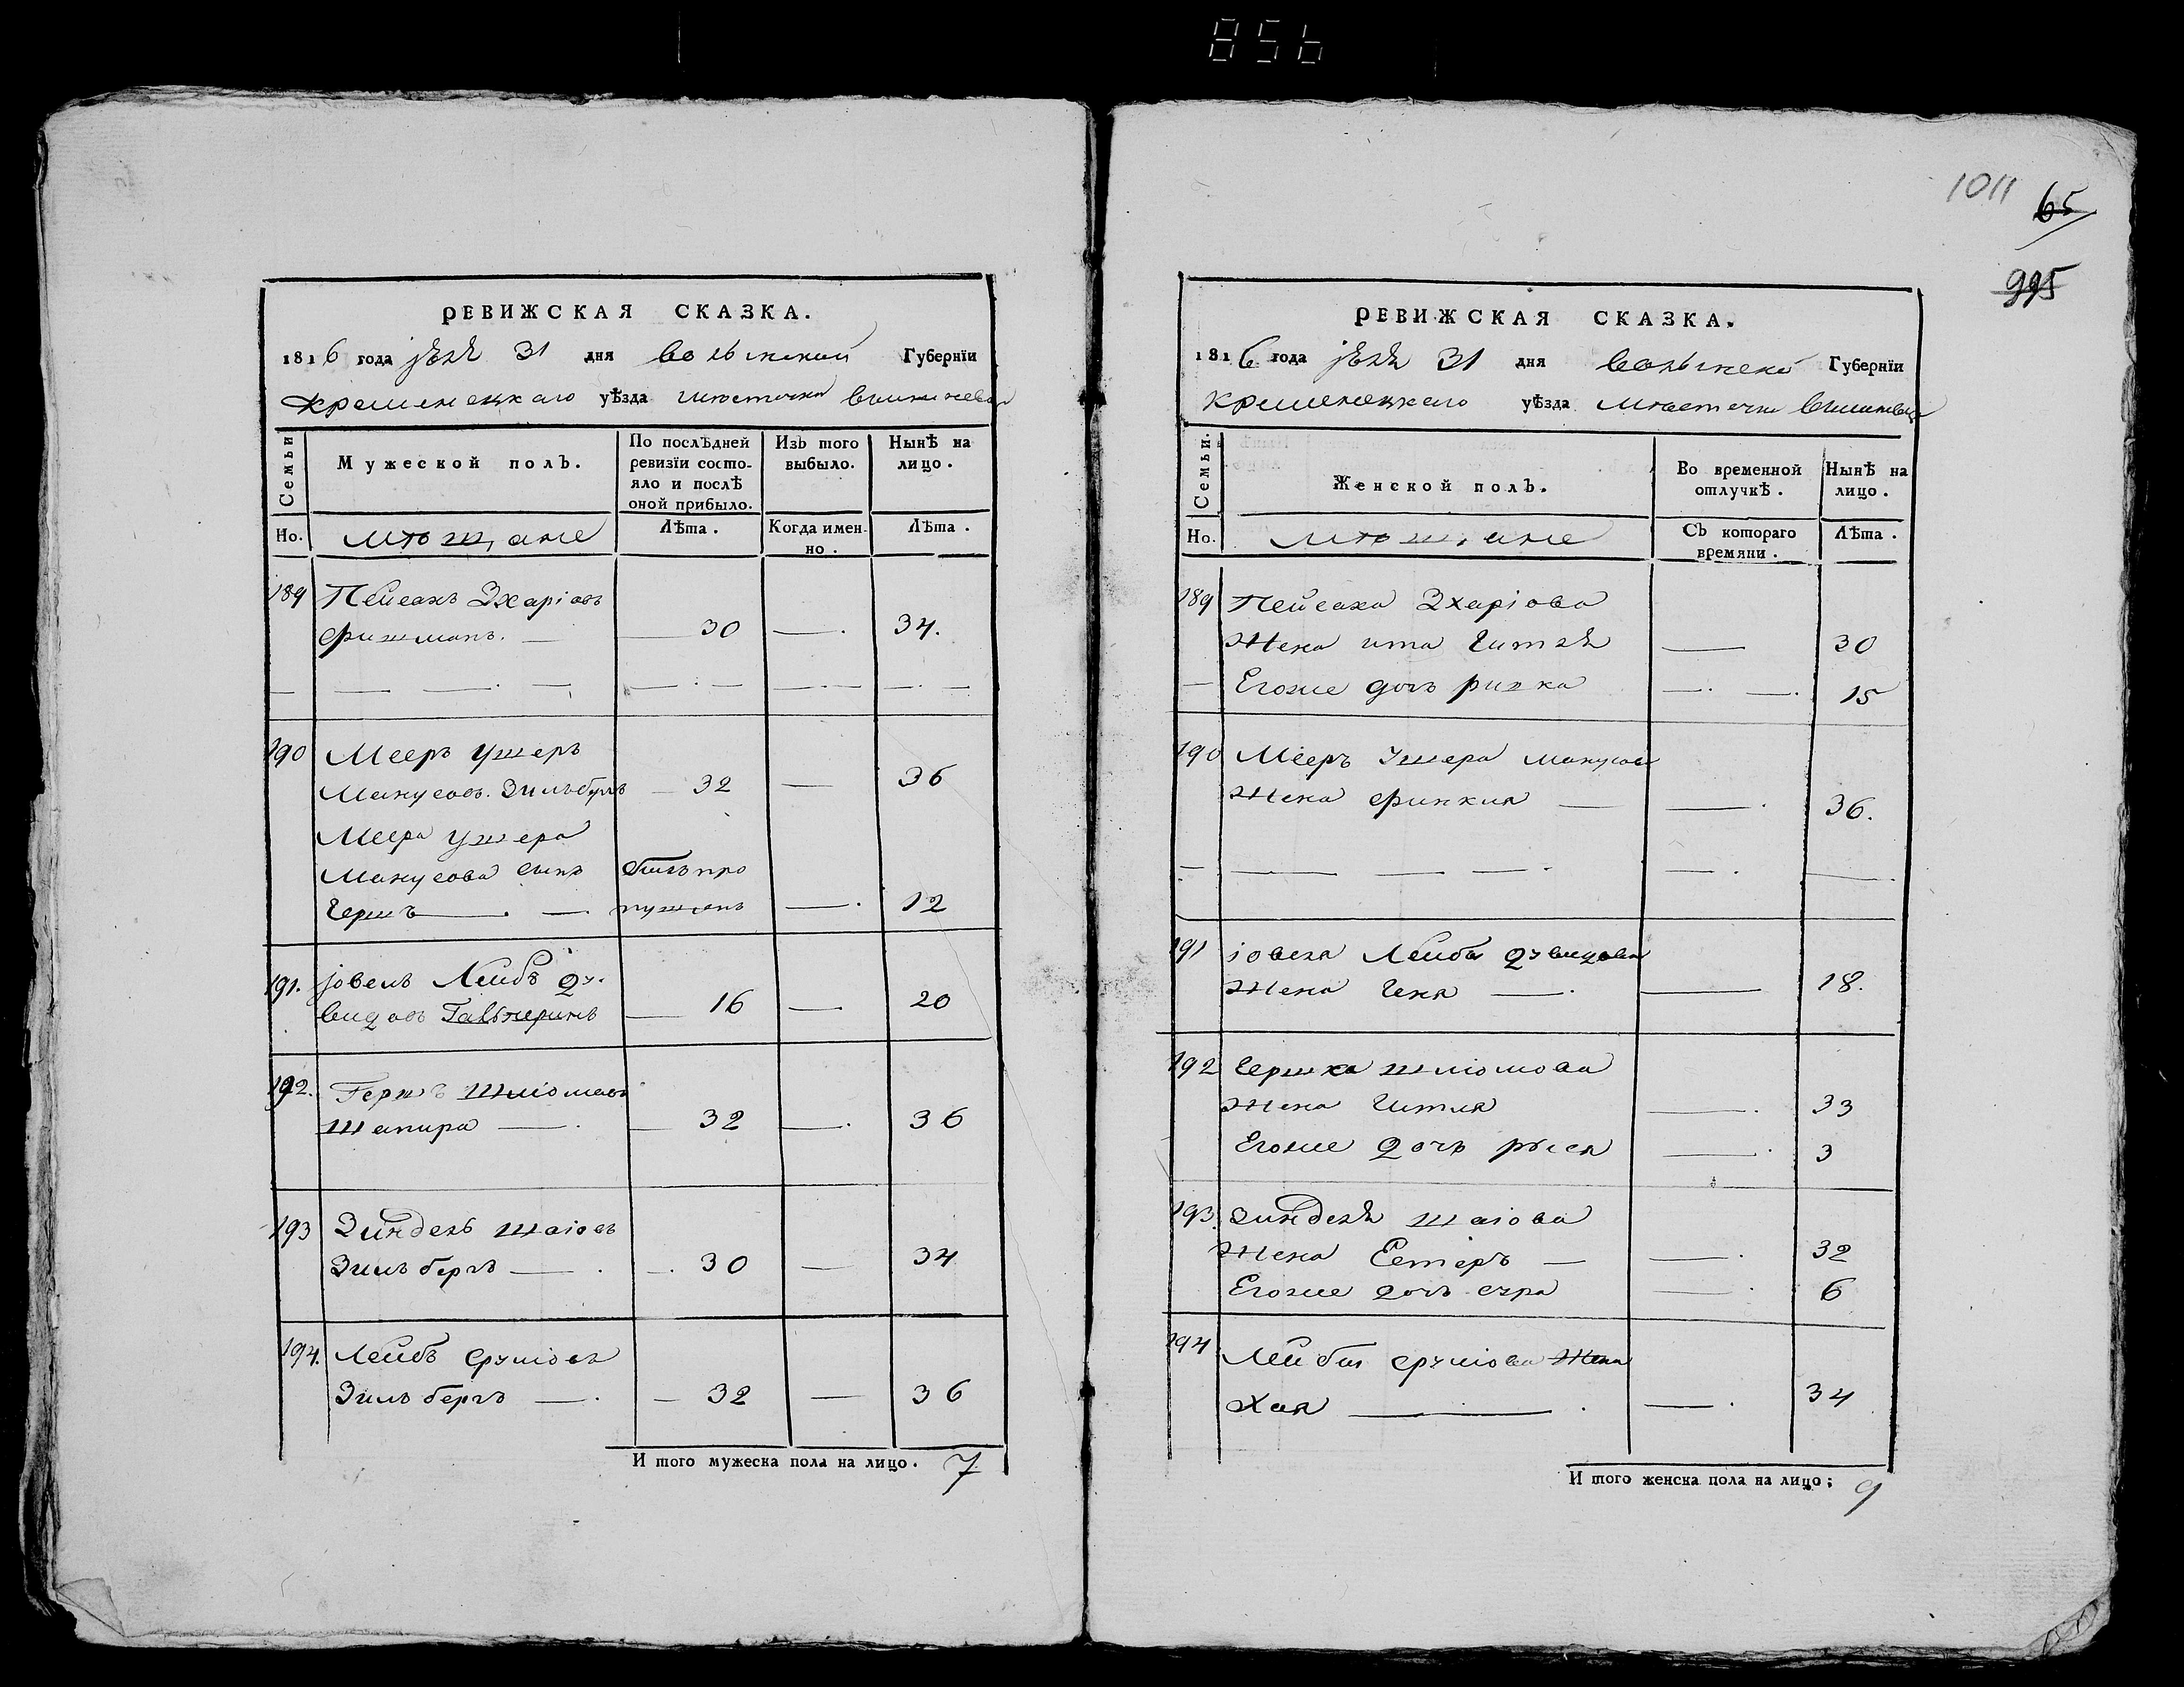 856
1011
65
995
РЕВИЖСКАЯ СКАЗКА.
1816 года іюля 31 дня волынской Губернїи
Кременецкаго уѣзда мѣстечка вишневца
Семьи
Мужеской полъ.
По послѣдней ревизїи состо-
яло и послѣ
оной прибыло.
Изъ того
выбыло.
Нынѣ на
лицо.
Но.
мѣщане
Лѣта.
Когда имен-
но.
Лѣта.
189 Пейсахъ Зхаріовъ
Фишманъ. — 30 — 34.
190 Мееръ Ушеръ
Манусовъ Зильбергъ — 32 — 36
Меера Ушера
Манусова сынъ былъ про
Гершъ — пущенъ — 12
191. Іовель Лейбъ Ду-
видовъ — 16 — 20
192. Гершъ Шліомовъ
Шапира — 32 — 36
193 Зиндель Шаіовъ
Зильбергъ — 30 — 34
194. Лейбъ Сруліовъ
Зильбергъ — 32 — 36
И того мужеска пола на лицо. 7
РЕВИЖСКАЯ СКАЗКА.
1816 года іюля 31 дня волынской Губернїи
Кременецкаго уѣзда мѣстечка вишневца
Семьи.
Женской полъ.
Во временной
отлучкѣ.
Нынѣ на
лицо.
Но.
мѣщане
Съ котораго
времяни.
Лѣта.
189 Пейсаха Зхаріова
Жена ита Гитля — 30
Егоже дочь ривка — 15
190 Мееръ Ушера Манусова
Жена Фрипкия — 36.
191 іовеля Лейбы Дувидова
Жена Геня — 18.
192 Гершка Шліомова
Жена Гитля — 33
Егоже дочь рыся — 3
193. Зинделя Шаіова
Жена Естеръ — 32
Егоже дочь сура — 6
194 Лейбы Сруліова Жена
Хая — 34
И того женска пола на лицо; 9